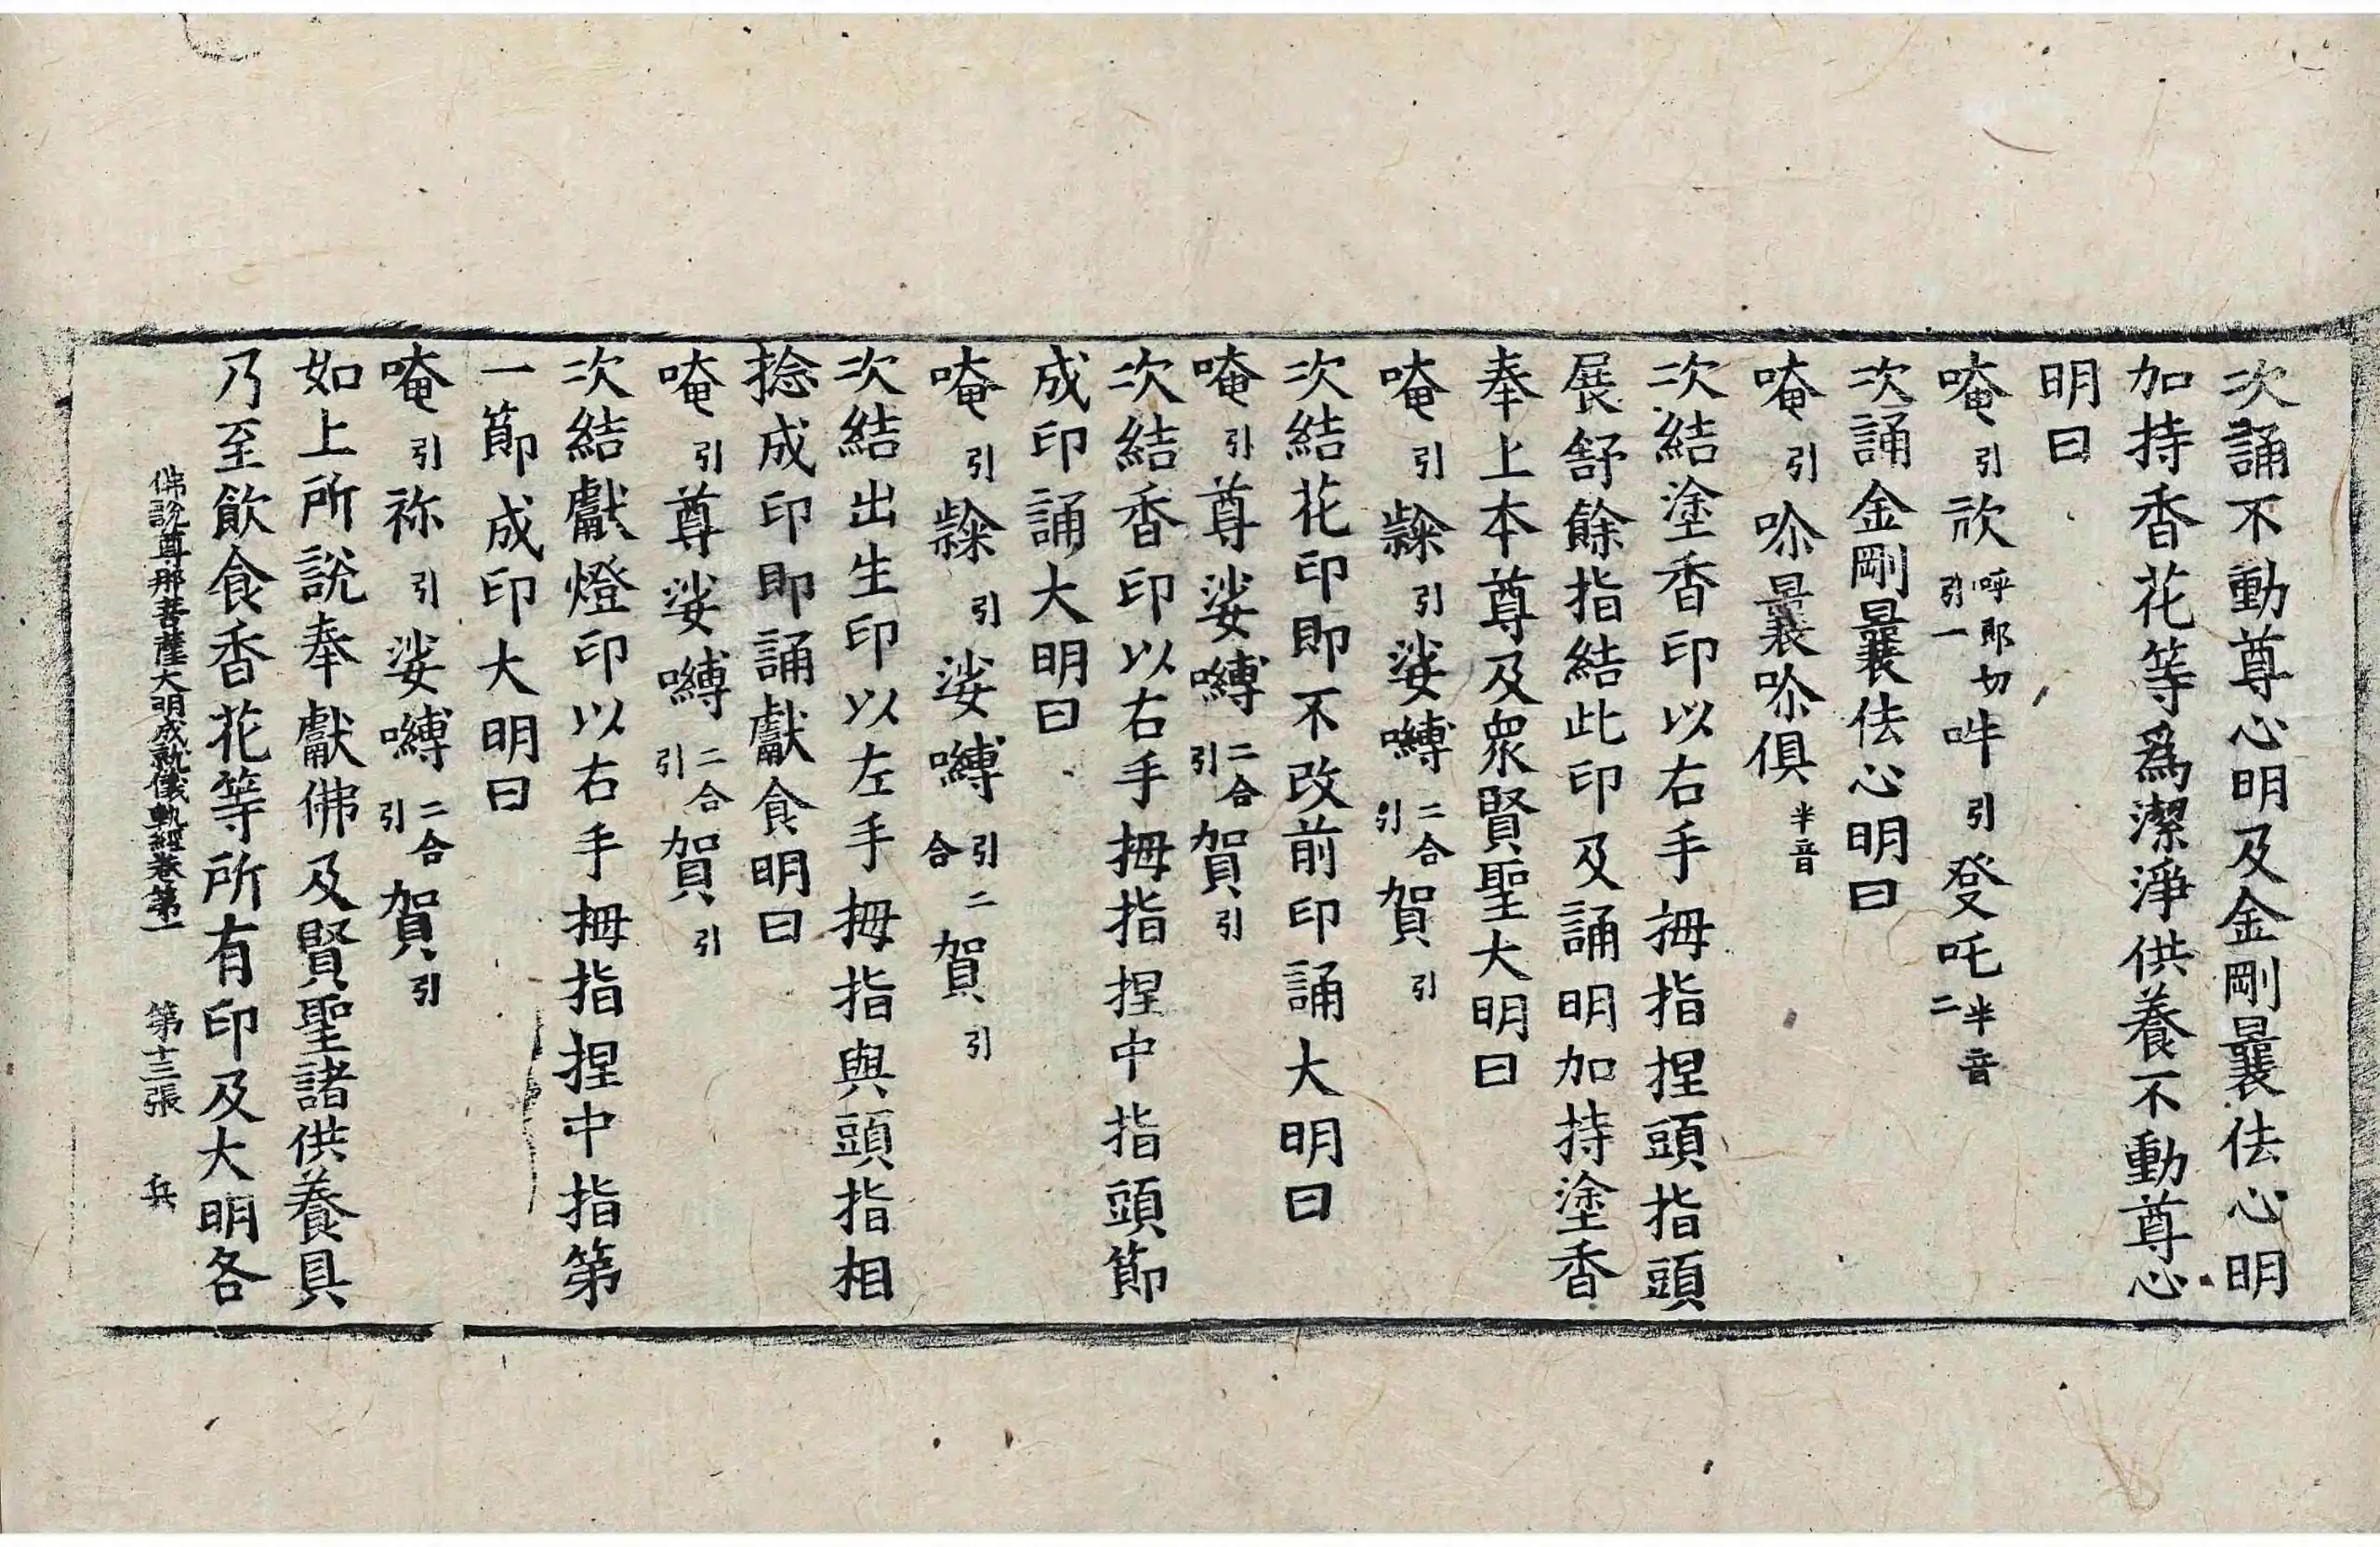 次誦不動尊心明及金剛曩佉心明
加持香花等爲潔淨供養不動尊心
明曰
唵引㰠呼郎切引一吽引癹吒半音二
次誦金剛曩佉心明曰
唵引唥曩唥俱半音
次結塗香印以右手拇指捏頭指頭
展舒餘指結此印及誦明加持塗香
奉上本尊及眾賢聖大明曰
唵引𪗶引娑嚩二合引賀引
次結花印即不改前印誦大明曰
唵引尊娑嚩二合引賀引
次結香印以右手拇指捏中指頭節
成印誦大明曰
唵引𪗶引娑嚩引二合賀引
次結出生印以左手拇指與頭指相
捻成印即誦獻食明曰
唵引尊娑嚩二合引賀引
次結獻燈印以右手拇指捏中指第
一節成印大明曰
唵引祢引娑嚩二合引賀引
如上所說奉獻佛及賢聖諸供養具
乃至飲食香花等所有印及大明各
佛說尊那菩薩大明成就儀軌經卷第一 第十三張 兵